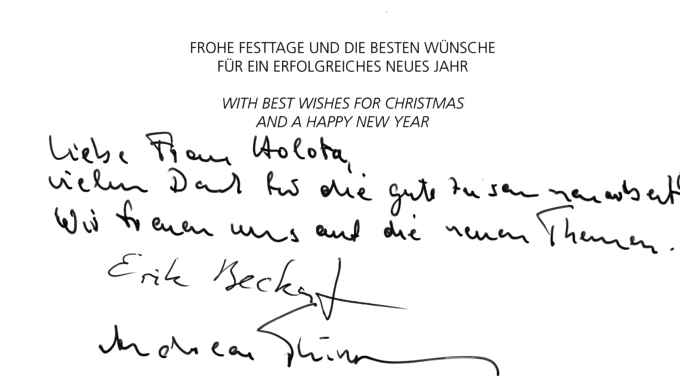 FROHE FESTTAGE UND DIE BESTEN WÜNSCHE
FÜR EIN ERFOLGREICHES NEUES JAHR
WITH BEST WISHES FOR CHRISTMAS
AND A HAPPY NEW YEAR
Liebe Frau Holota,
vielen Dank für die gute Zusammenarbeit!
Wir freuen uns auf die neuen Themen.
Erik Beckert
Andreas